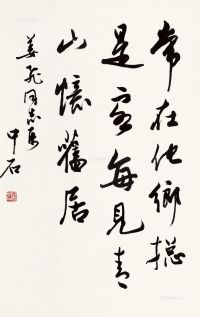 常在他鄉總
是客每見青
山憶舊居
姜飛同志属
中石